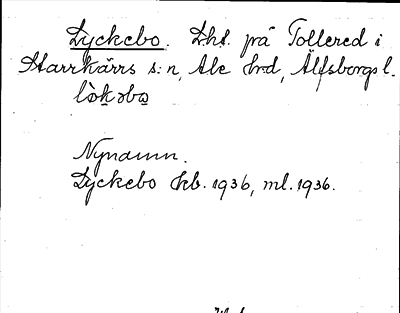 Lyckebo. Lht. på Tollered i
Starrkärrs s:n, Ale hrd, Älfsborgs l.
Nynamn.
Lyckebo kb. 1936, ml. 1936.